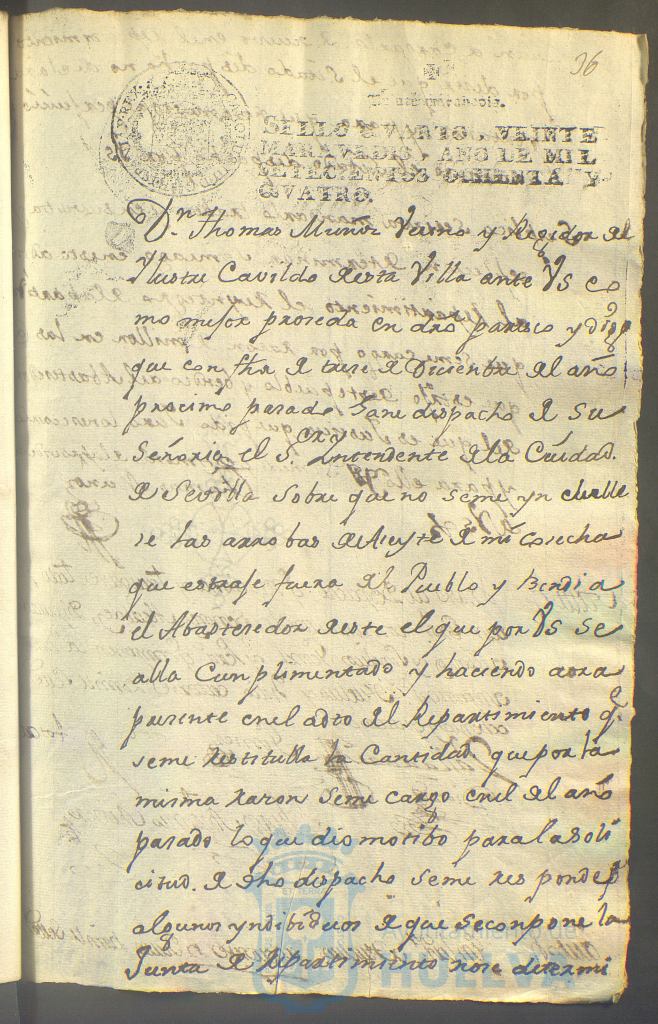 36
SELLO QVARTO, VEINTE
MARAVEDIS, AÑO DE MIL
SETECIENTOS OCHENTA Y
QVATRO.
Dn. Thomas Muñiz Vesino y Regidor del
Ylustre Cavildo desta Villa ante VS co
mo mejor proseda en dro paresco y digo
que con fha de trese de Disiembre del año
procimo pasado gane dispacho de Su
Señoria el Sr. Yntendente de la Ciudad
de Sevilla sobre que no seme ynclulle
se las arrobas de Aseyte de mi cosecha
que estraje fuera del Pueblo y bendi a
el Abasteredor deste el que por VS se
alla Cunplimentado y haciendo aora
presente enel acto del Repartimiento q.
seme restitulla la Cantidad que por la
misma rason seme cargo enel del año
pasado lo que dio motibo para la soli
citud de dho dispacho seme responde p
algunos yndibiduos de que seconpone la
Junta de Repartimiento nose determi
HUELVA